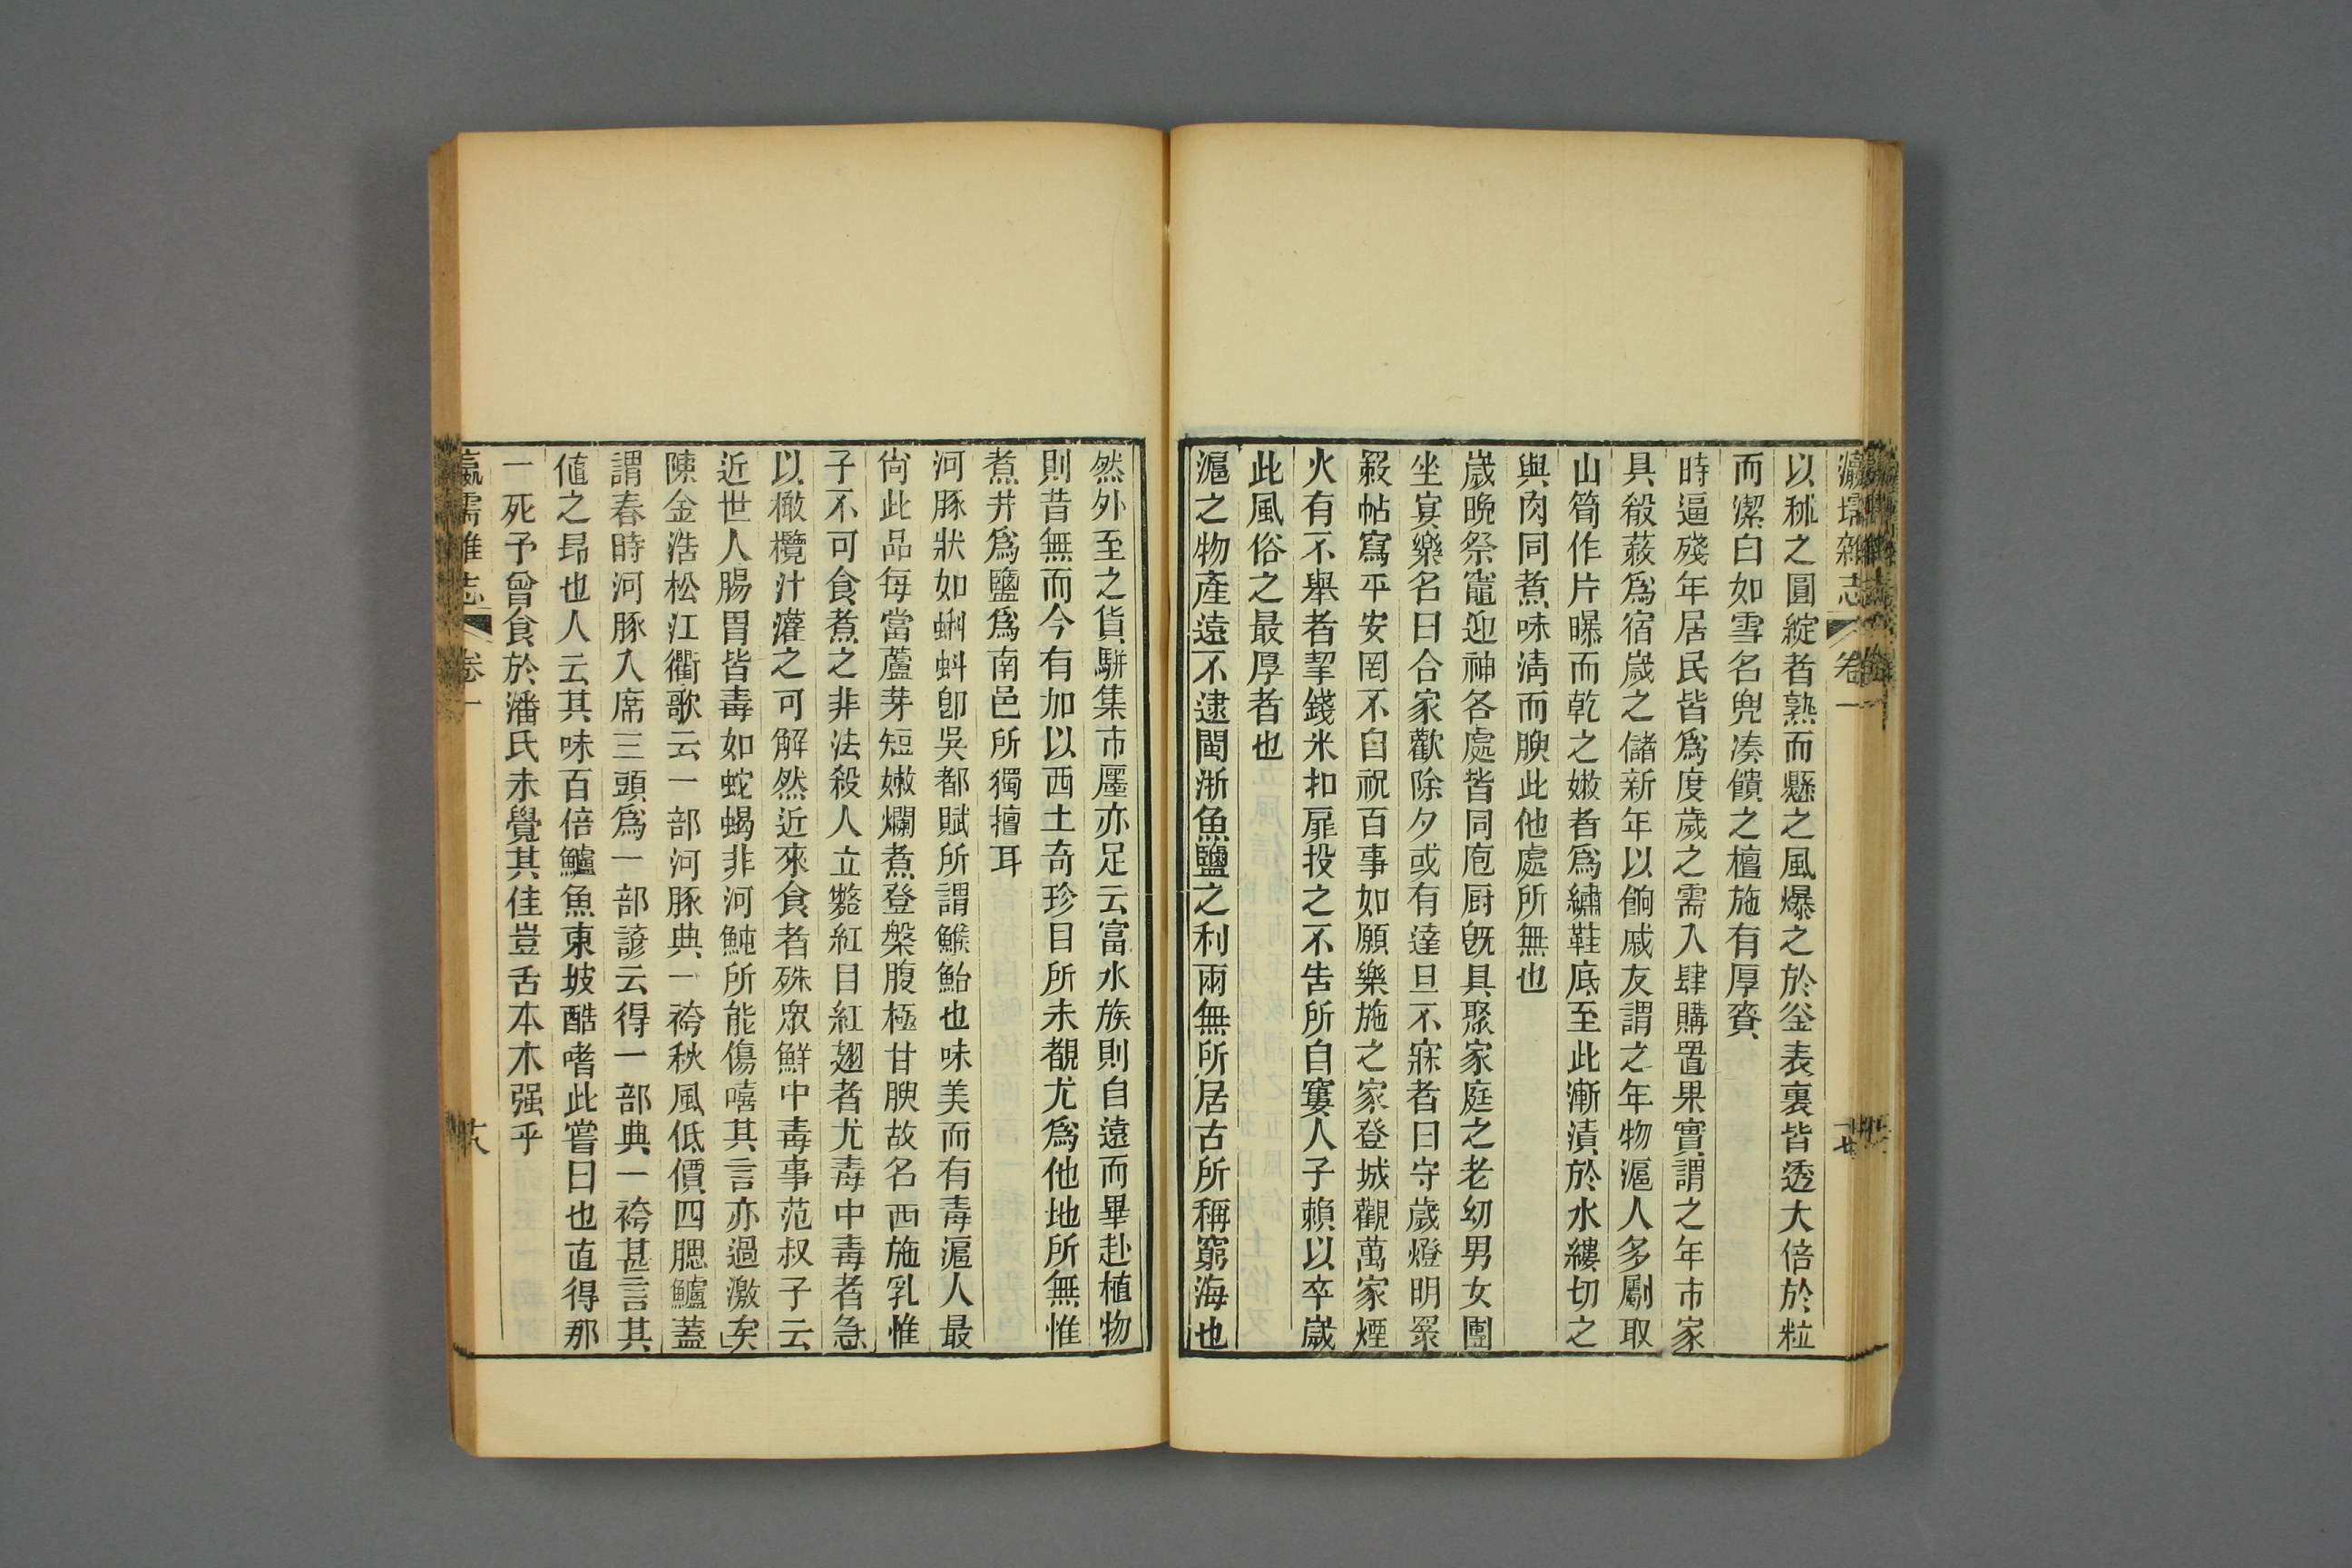 瀛壖雜志 卷一
以秫之圓綻者熟而懸之風爆之於釜表裏皆透大倍於粒
而潔白如雪名兜湊饋之檀施有厚賚
時逼殘年居民皆爲度歲之需入肆購置果實謂之年市家
具殽蔌爲宿歲之儲新年以餉戚友謂之年物滬人多劚取
山筍作片曝而乾之嫩者爲繡鞋底至此漸漬於水縷切之
與肉同煮味清而腴此他處所無也
歲晚祭竈迎神各處皆同庖厨旣具聚家庭之老幼男女團
坐宴樂名曰合家歡除夕或有達旦不寐者曰守歲燈明翠
帖寫平安罔不自祝百事如願樂施之家登城觀萬家煙
火有不舉者挈錢米扣扉投之不告所自窶人子賴以卒歲
此風俗之最厚者也
滬之物產遠不逮閩浙魚鹽之利兩無所居古所稱窮海也
然外至之貨駢集市廛亦足云富水族則自遠而畢赴植物
則昔無而今有加以西土奇珍目所未覩尤爲他地所無惟
煮井爲鹽爲南邑所獨擅耳
河豚狀如蝌蚪卽吳都賦所謂鯸鮐也味美而有毒滬人最
尙此品每當蘆芽短嫩爛煮登槃腹極甘腴故名西施乳惟
子不可食煮之非法殺人立斃紅目紅翅者尤毒中毒者急
以橄欖汁灌之可解然近來食者殊眾鮮中毒事范叔子云
近世人腸胃皆毒如蛇蝎非河魨所能傷嘻其言亦過激矣
陳金浩松江衢歌云一部河豚典一袴秋風低價四腮鱸蓋
謂春時河豚入席三頭爲一部諺云得一部典一袴甚言其
値之昂也人云其味百倍鱸魚東坡酷嗜此嘗曰也直得那
一死予曾食於潘氏未覺其佳豈舌本木强乎
瀛壖雜志 卷一